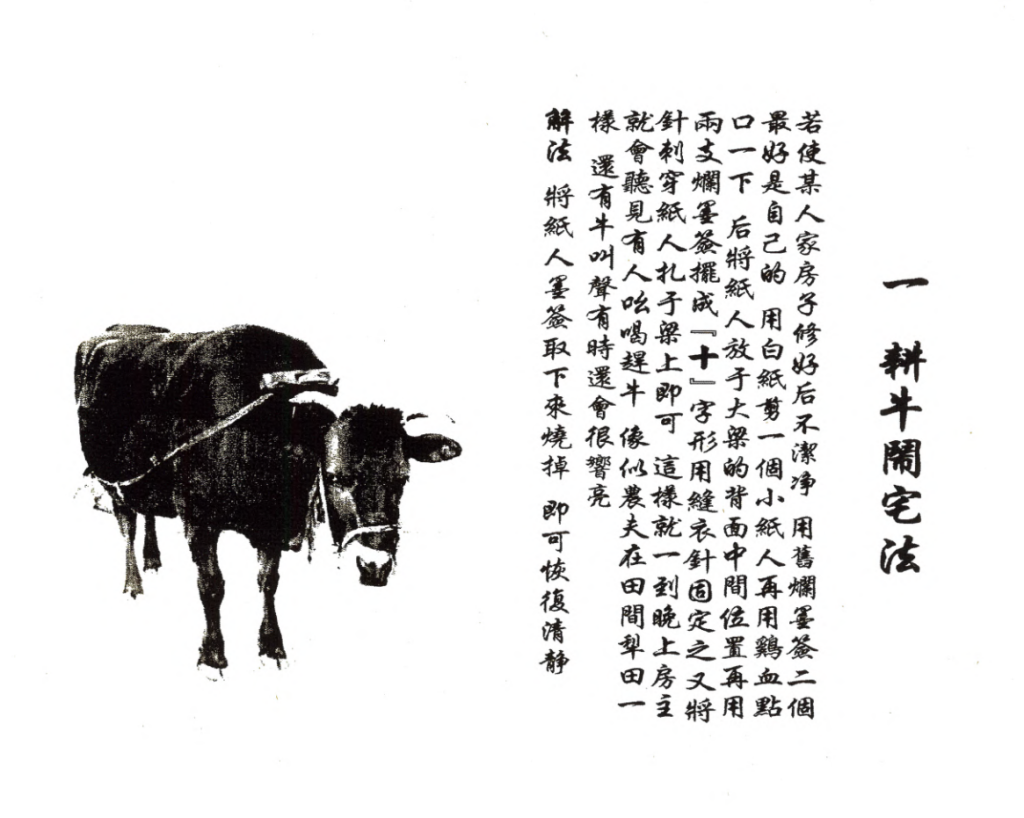 一 耕牛鬧宅法
若使某人家房子修好后不潔净 用舊爛墨簽二個
最好是自己的 用白紙剪一個小紙人再用鷄血點
口一下 后將紙人放于大梁的背面中間位置再用
兩支爛墨簽擺成『十』字形用縫衣針固定之又將
針刺穿紙人扎于梁上即可 這樣就一到晚上房主
就會聽見有人吆喝趕牛 像似農夫在田間犁田一
樣 還有牛叫聲有時還會很響亮
解法 將紙人墨簽取下來燒掉 即可恢復清静